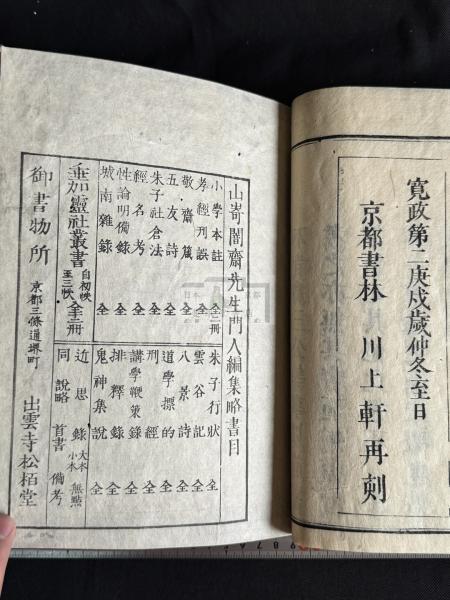 寛政第二庚戌歳仲冬至日
京都書林 川上軒再刻
山﨑闇齋先生門人編集略書目
小學本註 全二冊
孝經刊誤 全
敬齋箴 全
五友詩 全
朱子社倉法 全
經名考 全
性論明備錄 全
城南雜錄 全
垂加靈社叢書 自初帙至三帙 全三冊
朱子行狀 全
雲谷記 全
八景詩 全
道學標的 全
刑經 全
講學鞭策錄 全
排釋錄 全
鬼神集說 全
近思錄 大本 小本 無點
同 說略 首書 備考
御書物所 京都三條通堺町 出雲寺松栢堂